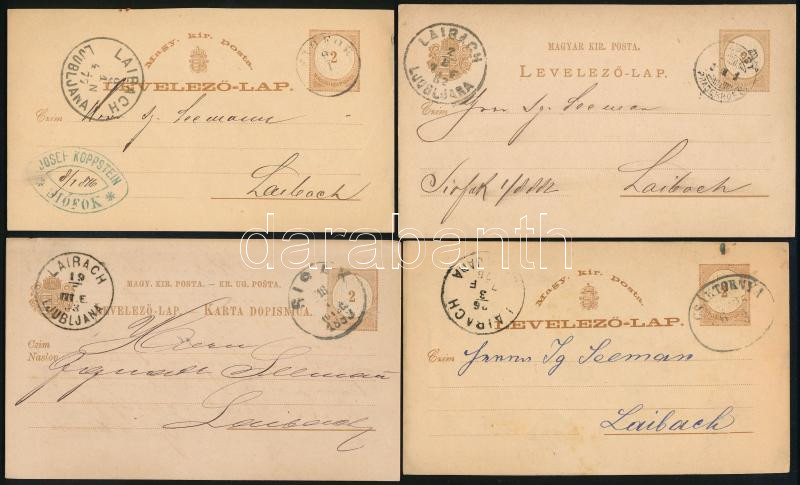 Magy. kir. posta.
LEVELEZŐ-LAP.
2
LAIBACH
LJUBLJANA
Czim Herrn Ig. Seemann
JOSEF KOPPSTEIN
SIÓFOK
Laibach
MAGYAR KIR. POSTA.
LEVELEZŐ-LAP.
LAIBACH
LJUBLJANA
Czim Herrn Ig. Seeman
Siofok
Laibach
MAGY. KIR. POSTA. — KR. UG. POŠTA.
LEVELEZŐ-LAP. KARTA DOPISNICA.
2
LAIBACH
19
LJUBLJANA
Czim
Naslov
Herrn
Ignatz Seeman
Laibach
Magy. kir. posta.
LEVELEZŐ-LAP.
2
LAIBACH
CSÁKTORNYA
Czim Herrn Ig Seeman
Laibach
darabanth